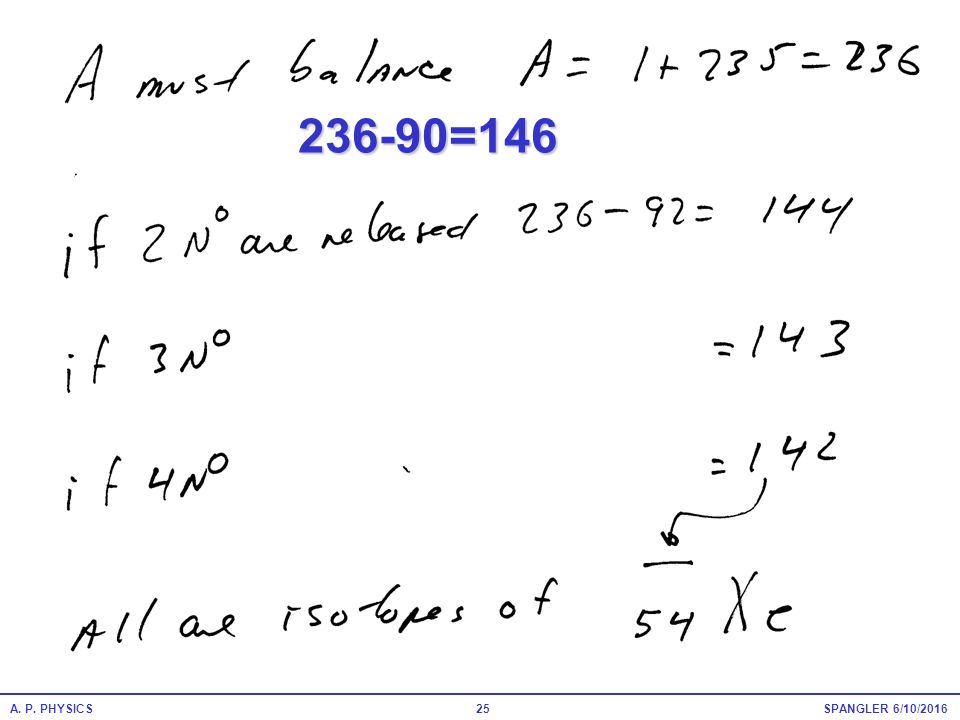 A must balance A = 1+235=236
236-90=146
if 2 N⁰ are released 236-92= 144
if 3N⁰ =143
if 4N⁰ =142
All are isotopes of 54 Xe
A. P. PHYSICS 25 SPANGLER 6/10/2016